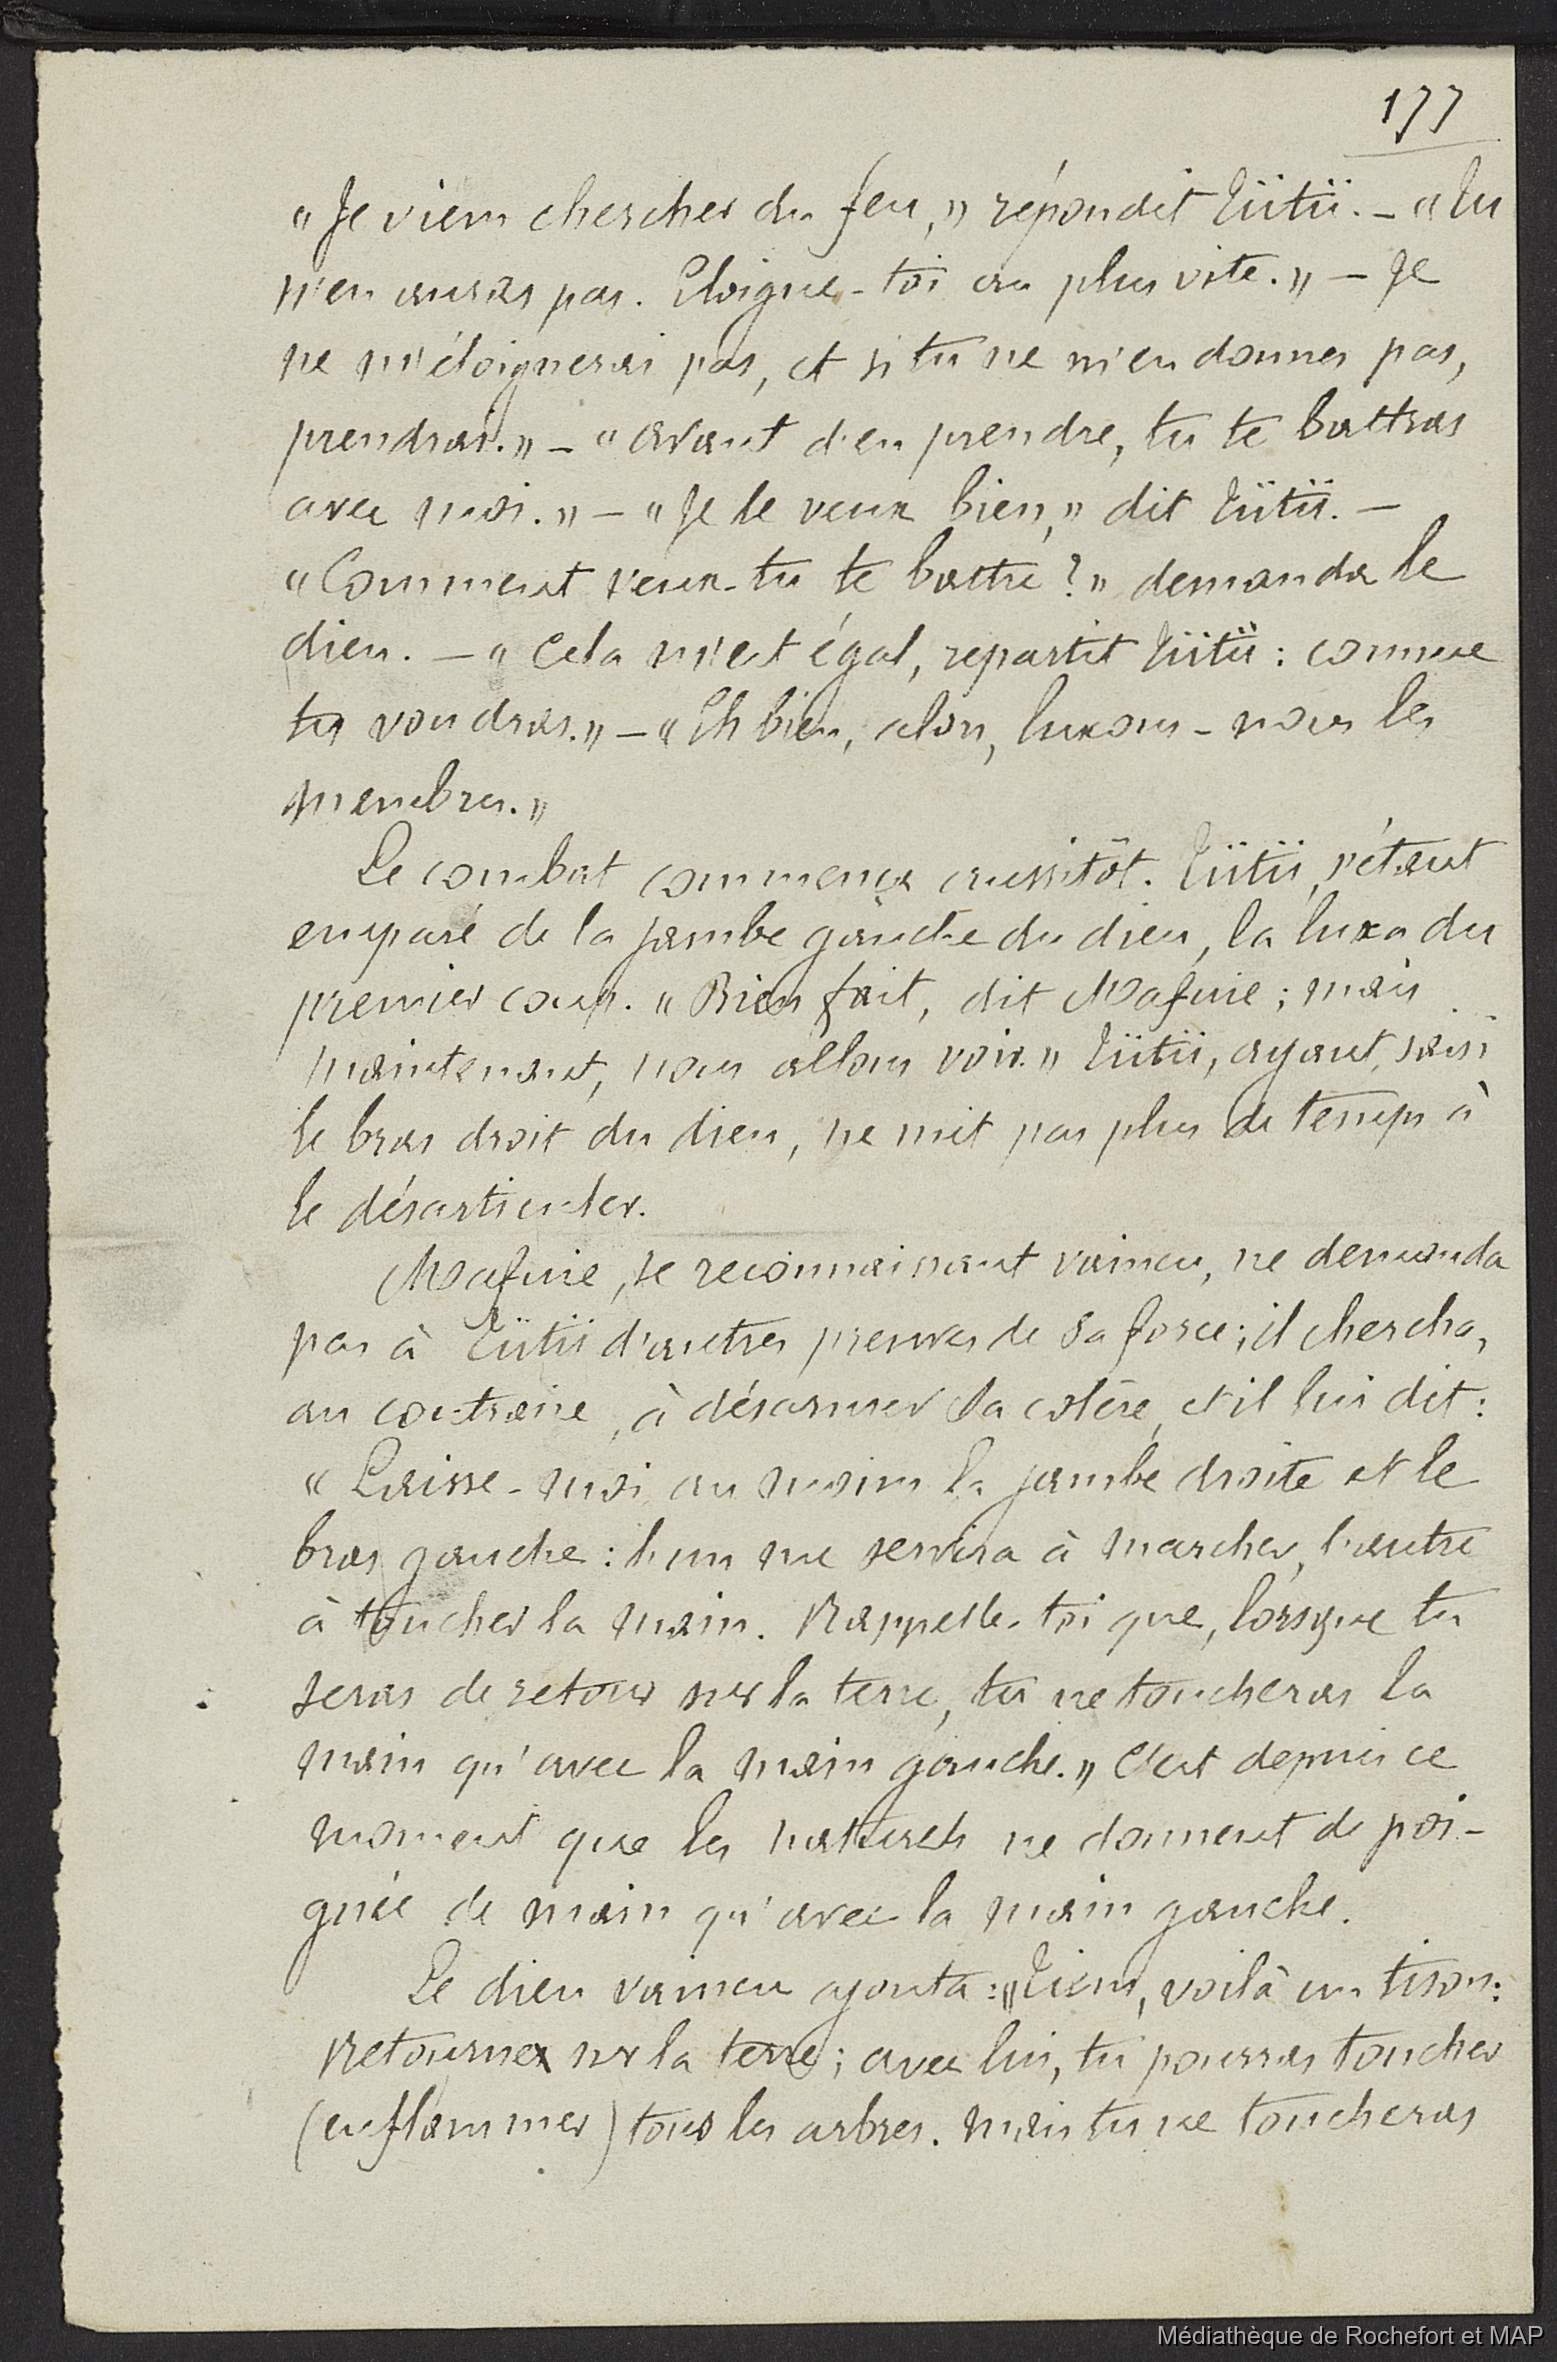 177
« Je viens chercher du feu, » répondit Tiïtiï. — « Tu
n'en auras pas. Eloigne-toi au plus vite. » — Je
ne m'éloignerai pas, et si tu ne m'en donnes pas,
prendrai. » — « Avant d'en prendre, tu te battras
avec moi. » — « Je le veux bien, » dit Tiïtiï. —
« Comment veux-tu te battre ? » demanda le
dieu. — « Cela m'est égal, repartit Tiïtiï : comme
tu voudras. » — « Eh bien, alors, luxons-nous les
membres. »
Le combat commença aussitôt. Tiïtiï, s'étant
emparé de la jambe gauche du dieu, la luxa du
premier coup. « Bien fait, dit Mafuie ; mais
maintenant, nous allons voir. » Tiïtiï, ayant saisi
le bras droit du dieu, ne mit pas plus de temps à
le désarticuler.
Mafuie, se reconnaissant vaincu, ne demanda
pas à Tiïtiï d'autres preuves de sa force ; il chercha,
au contraire, à désarmer sa colère, et il lui dit :
« Laisse-moi au moins la jambe droite et le
bras gauche : l'un me servira à marcher, l'autre
à toucher la main. Rappelle-toi que, lorsque tu
seras de retour sur la terre, tu ne toucheras la
main qu'avec la main gauche. » C'est depuis ce
moment que les naturels ne donnent de poi-
gnée de main qu'avec la main gauche.
Le dieu vaincu ajouta : « Tiens, voilà un tison :
Retourne sur la terre ; avec lui, tu pourras toucher
(enflammer) tous les arbres. Mais tu ne toucheras
Médiathèque de Rochefort et MAP